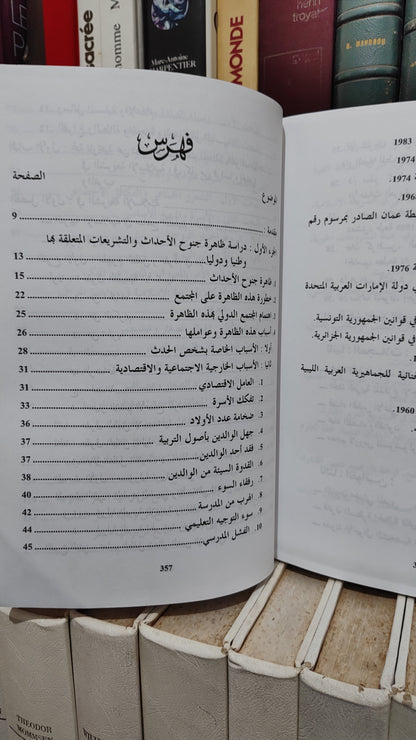 sacrée
homme
Marc-Antoine
CHARPENTIER
MONDE
henri
troyat
R. MANDROU
فهرس
الموضوع
الصفحة
مقدمة : 9
الجزء الأول : دراسة ظاهرة جنوح الأحداث والتشريعات المتعلقة بها
وطنيا ودوليا 13
1. ظاهرة جنوح الأحداث 15
2. خطورة هذه الظاهرة على المجتمع 22
3. اهتمام المجتمع الدولي بهذه الظاهرة 25
4. أسباب هذه الظاهرة وعواملها 26
أولا : الأسباب الخاصة بشخص الحدث 28
ثانيا : الأسباب الخارجية الاجتماعية والاقتصادية 31
1. العامل الاقتصادي 31
2. تفكك الأسرة 33
3. ضخامة عدد الأولاد 36
4. جهل الوالدين بأصول التربية 37
5. فقد أحد الوالدين 37
6. القدوة السيئة من الوالدين 38
7. رفقاء السوء 40
8. الهرب من المدرسة 42
9. سوء التوجيه التعليمي 44
10. الفشل المدرسي 45
357
1983
1974
1974
طنة عمان الصادر بمرسوم رقم
1976
دولة الإمارات العربية المتحدة
في قوانين الجمهورية التونسية.
في قوانين الجمهورية الجزائرية.
للجماهيرية العربية الليبية
1960
3
THEODOR
MOMMSEN